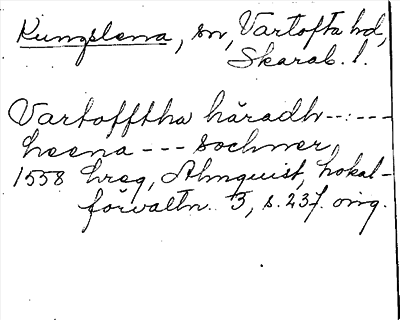 Kungslena, sn, Vartofta hd,
Skarab. l.
Vartofftha häradh--:---
leena --- sochner
1558 hreg, Almquist, Lokal-
förvaltn. 3, s. 237. orig.